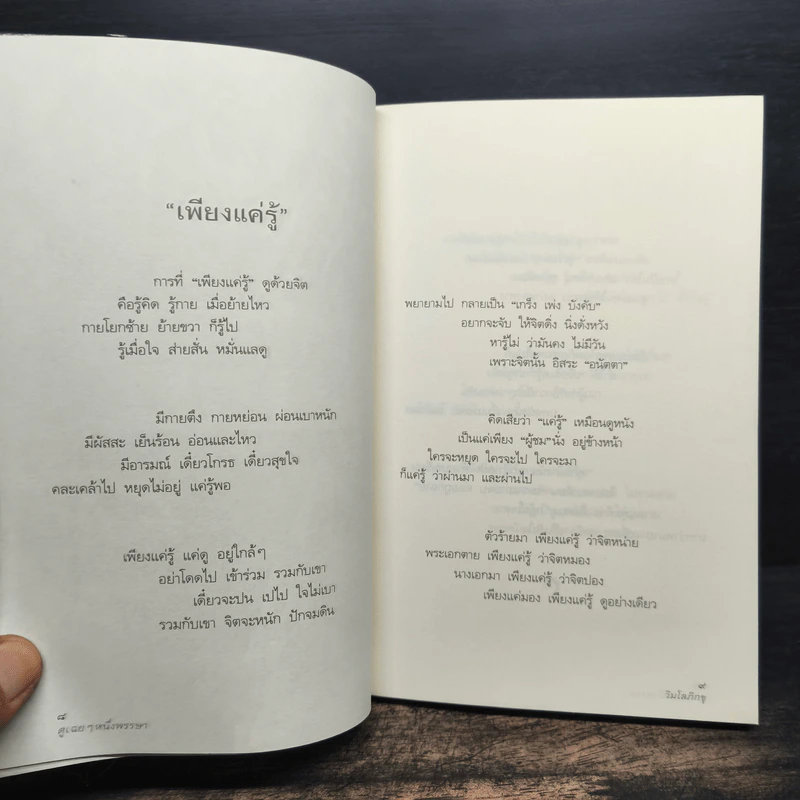 “เพียงแค่รู้”
การที่ “เพียงแค่รู้” ดูด้วยจิต
คือรู้คิด รู้กาย เมื่อย้ายไหว
กายโยกซ้าย ย้ายขวา ก็รู้ไป
รู้เมื่อใจ ส่ายสั่น หมั่นแลดู
มีกายตึง กายหย่อน ผ่อนเบาหนัก
มีผัสสะ เย็นร้อน อ่อนและไหว
มีอารมณ์ เดี๋ยวโกรธ เดี๋ยวสุขใจ
คละเคล้าไป หยุดไม่อยู่ แค่รู้พอ
เพียงแค่รู้ แค่ดู อยู่ใกล้ๆ
อย่าโดดไป เข้าร่วม รวมกับเขา
เดี๋ยวจะปน เปไป ใจไม่เบา
รวมกับเขา จิตจะหนัก ปักจมดิน
๘
ดูเฉยๆหนึ่งพรรษา
พยายามไป กลายเป็น “เกร็ง เพ่ง บังคับ”
อยากจะจับ ให้จิตดิ่ง นิ่งดั่งหวัง
หารู้ไม่ ว่ามันคง ไม่มีวัน
เพราะจิตนั้น อิสระ “อนัตตา”
คิดเสียว่า “แค่รู้” เหมือนดูหนัง
เป็นแค่เพียง “ผู้ชม”นั่ง อยู่ข้างหน้า
ใครจะหยุด ใครจะไป ใครจะมา
ก็แค่รู้ ว่าผ่านมา และผ่านไป
ตัวร้ายมา เพียงแค่รู้ ว่าจิตหน่าย
พระเอกตาย เพียงแค่รู้ ว่าจิตหมอง
นางเอกมา เพียงแค่รู้ ว่าจิตปอง
เพียงแค่มอง เพียงแค่รู้ ดูอย่างเดียว
๙
วิมโลภิกขุ